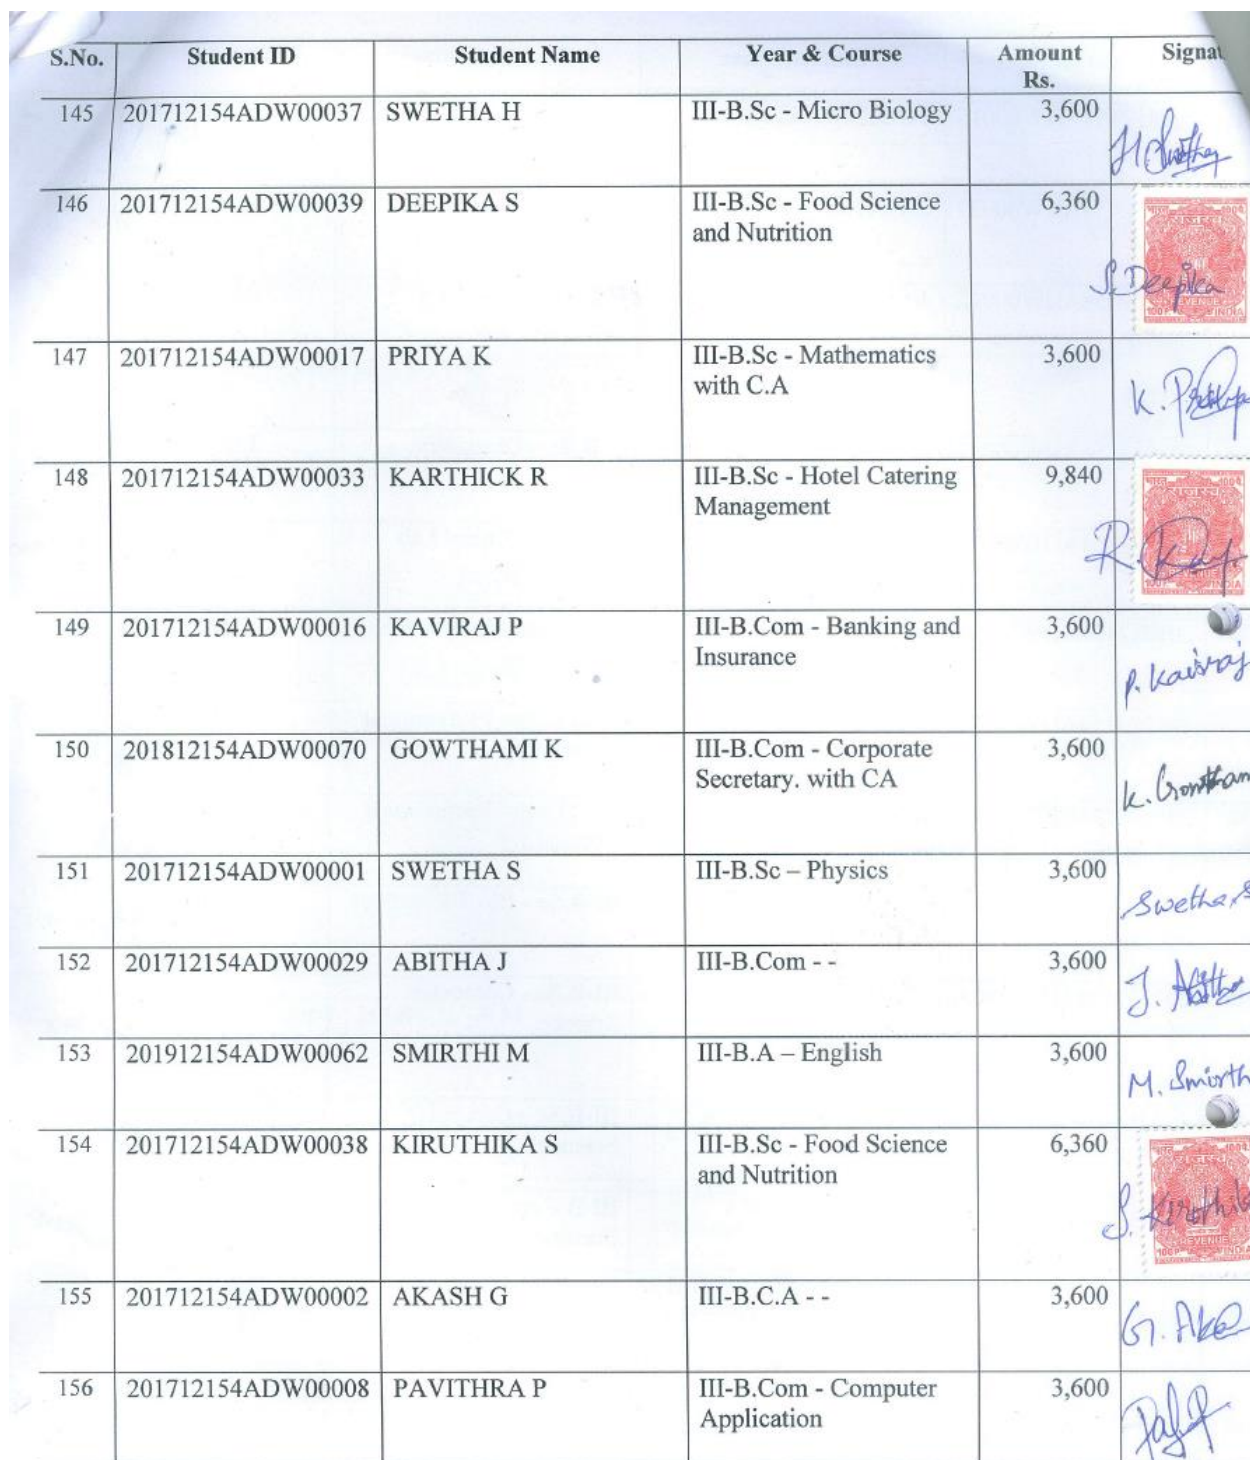 S.No. Student ID Student Name Year & Course Amount Signat
Rs.
145 201712154ADW00037 SWETHA H III-B.Sc - Micro Biology 3,600
H Swetha
146 201712154ADW00039 DEEPIKA S III-B.Sc - Food Science 6,360
and Nutrition
S. Deepika
REVENUE
100P INDIA
147 201712154ADW00017 PRIYA K III-B.Sc - Mathematics 3,600
with C.A
K. Priya
148 201712154ADW00033 KARTHICK R III-B.Sc - Hotel Catering 9,840
Management
भारत 100पै
राजस्व
R. Kar
REVENUE
100P INDIA
149 201712154ADW00016 KAVIRAJ P III-B.Com - Banking and 3,600
Insurance
P. Kaviraj
150 201812154ADW00070 GOWTHAMI K III-B.Com - Corporate 3,600
Secretary. with CA
K. Gowtham
151 201712154ADW00001 SWETHA S III-B.Sc – Physics 3,600
Swetha.S
152 201712154ADW00029 ABITHA J III-B.Com - - 3,600
J. Abitha
153 201912154ADW00062 SMIRTHI M III-B.A – English 3,600
M. Smirth
154 201712154ADW00038 KIRUTHIKA S III-B.Sc - Food Science 6,360
and Nutrition
राजस्व
S. Kiruthika
REVENUE
100P INDIA
155 201712154ADW00002 AKASH G III-B.C.A - - 3,600
G. Aka
156 201712154ADW00008 PAVITHRA P III-B.Com - Computer 3,600
Application